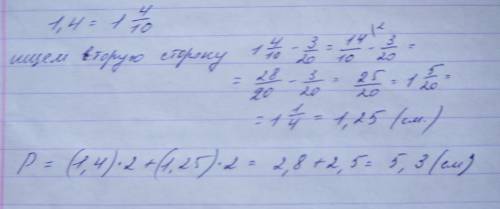 1,4 = 1 4/10
ищем вторую сторону 1 4/10 - 3/20 = 14/10 \2 - 3/20 =
= 28/20 - 3/20 = 25/20 = 1 5/20 =
= 1 1/4 = 1,25 (см.)
P = (1,4)·2 + (1,25)·2 = 2,8 + 2,5 = 5,3 (см)